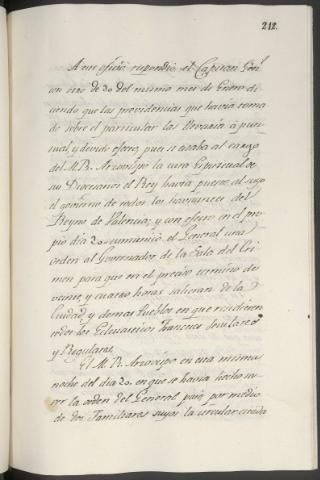 212.
A este oficio respondio el Capitan Gen.l
con otro de 20 del mismo mes de Enero di
ciendo que las providencias que havia toma
do sobre el particular las llevaria á pun
tual, y devido efecto, pues si estaba al cargo
del M. R. Arzovispo la cura Espiritual de
sus Diocesanos el Rey havia puesto al suyo
el govierno de todos los havitantes del
Reyno de Valencia; y con efecto en el pro
pio dia 20 comunicó el General una
orden al Governador de la Sala del Cri
men para que en el preciso termino de
veinte, y cuatro horas salieran de la
Ciudad y demas Pueblos en que residieren
todos los Eclesiasticos franceses Seculares
y Regulares.
El M. R. Arzovispo en esta misma
noche del dia 20. en que se havia hecho sa
ver la orden del General pasó por medio
de dos Familiares suyos la circular citada